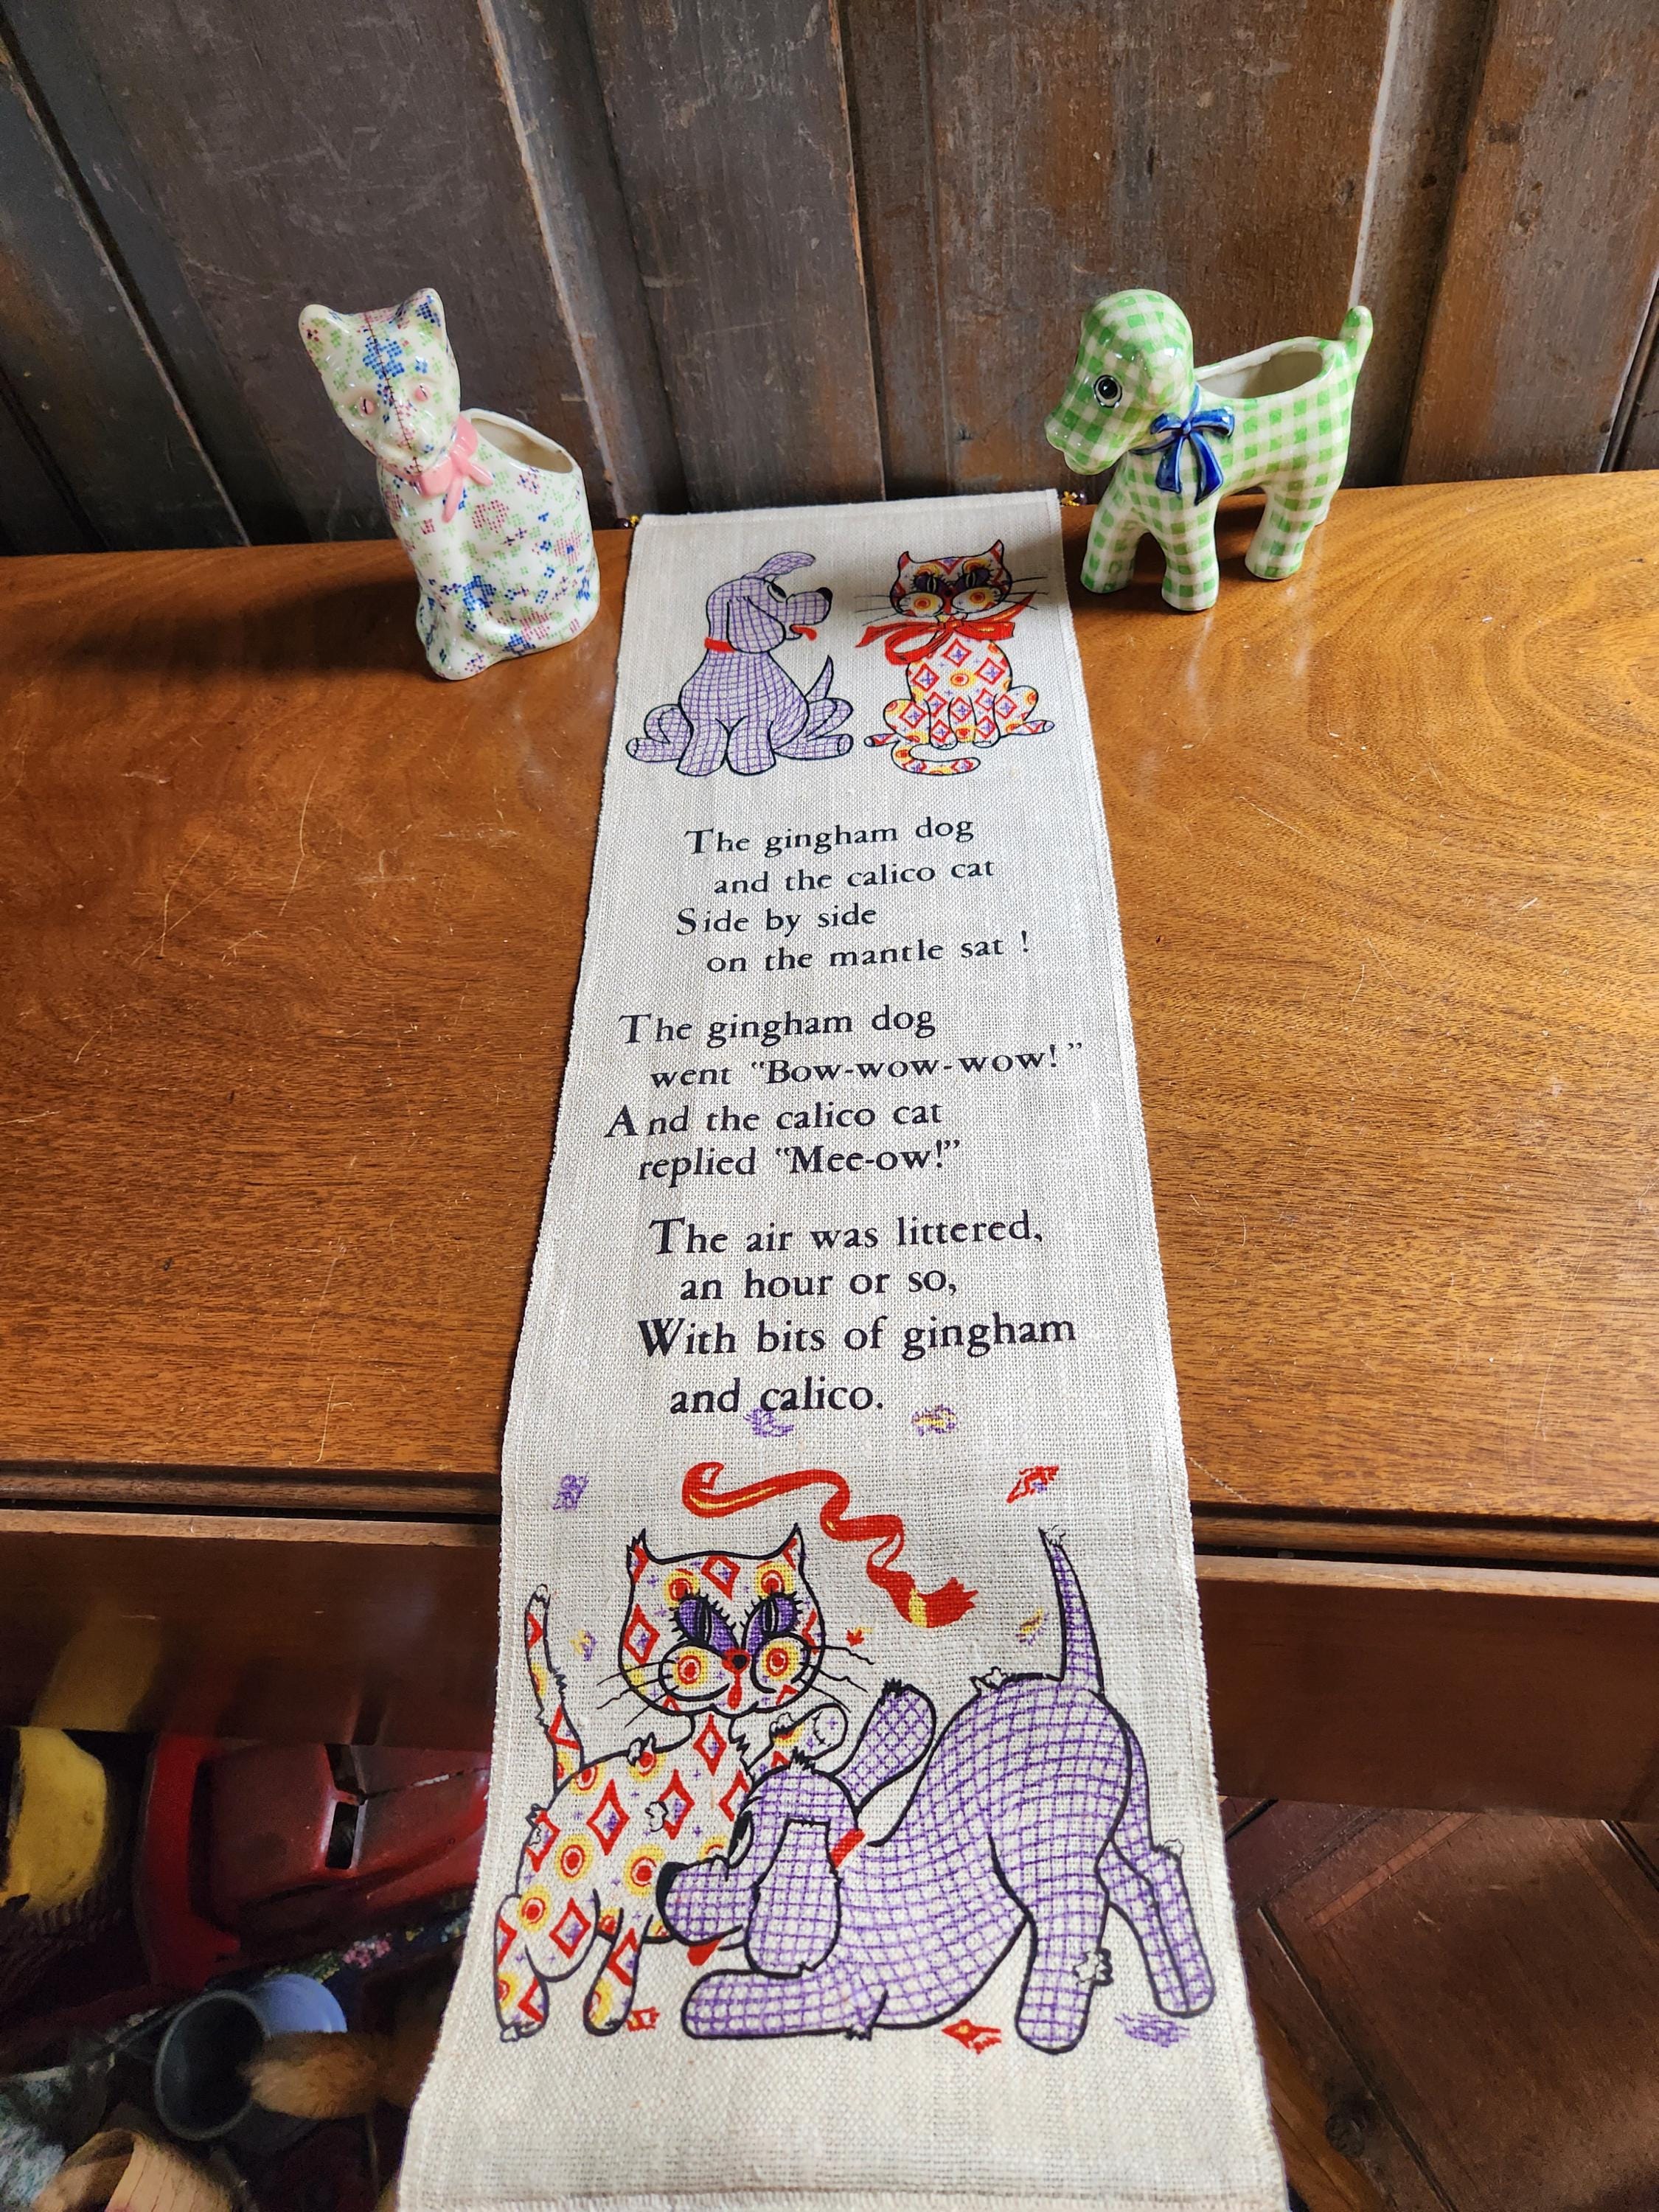 The gingham dog
and the calico cat
Side by side
on the mantle sat !
The gingham dog
went "Bow-wow-wow!"
And the calico cat
replied "Mee-ow!"
The air was littered,
an hour or so,
With bits of gingham
and calico.